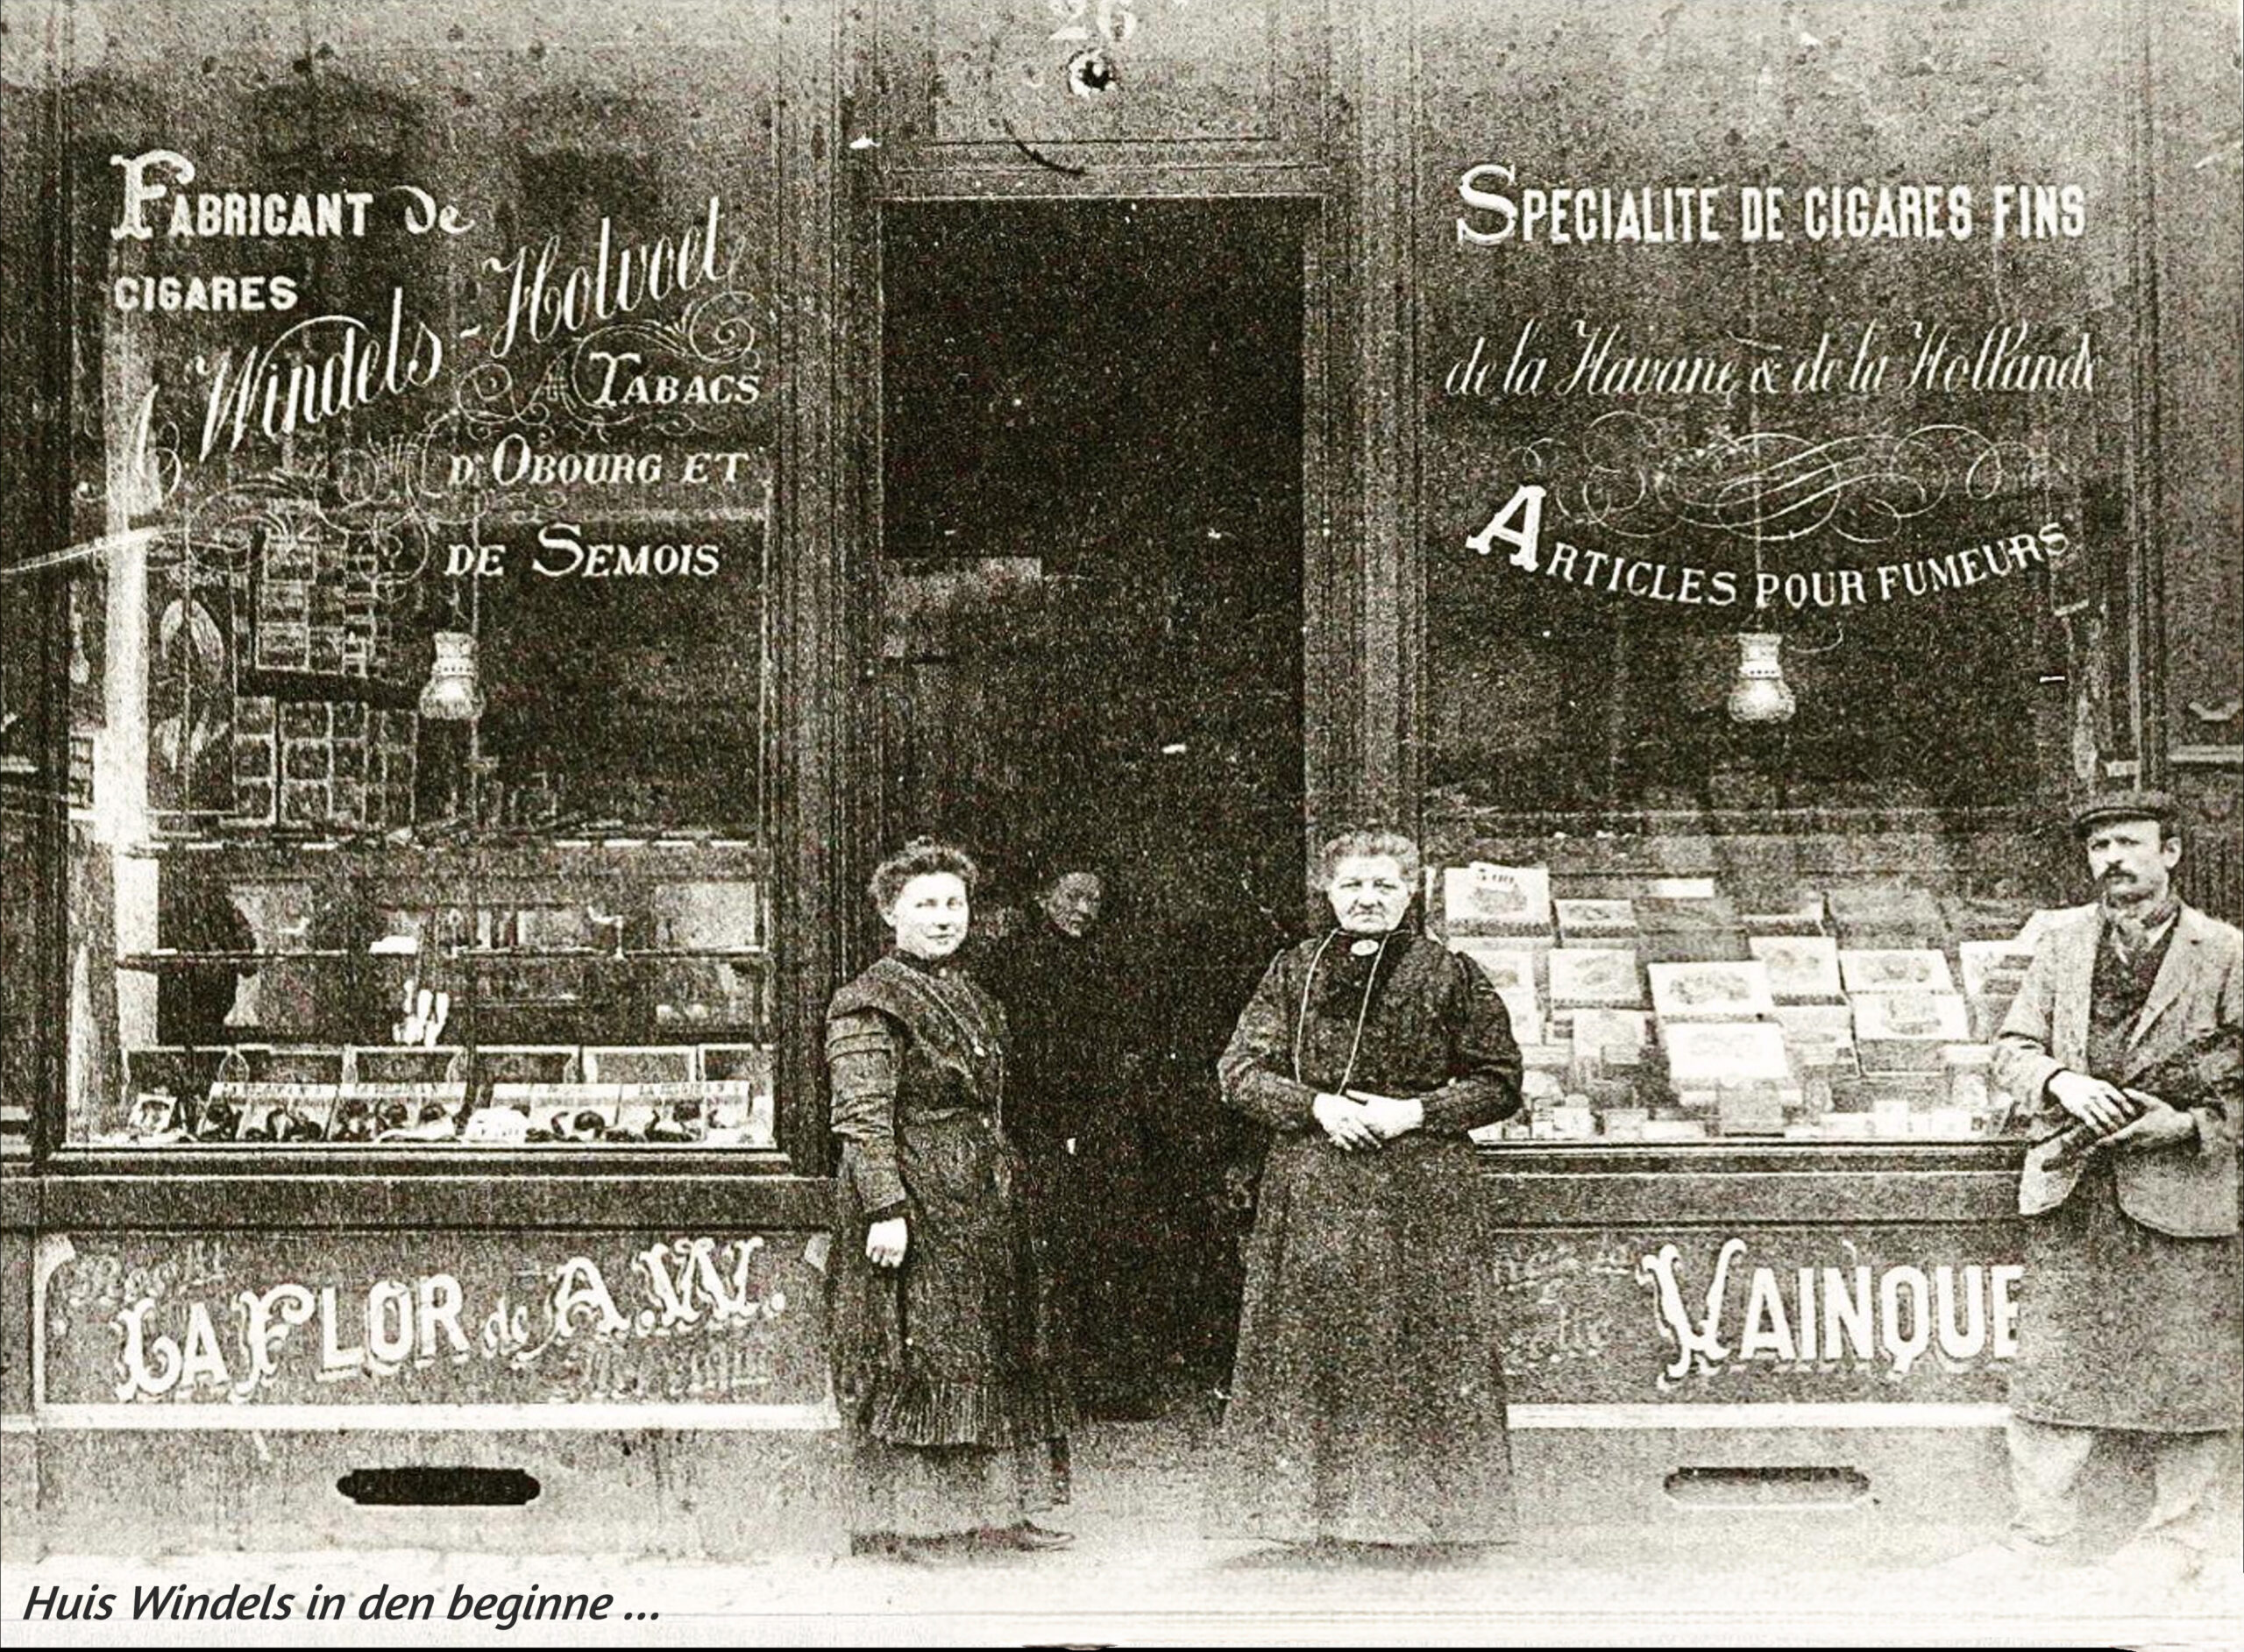 26
FABRICANT de
CIGARES
A Windels-Holvoet
TABACS
D'OBOURG ET
DE SEMOIS
SPECIALITE DE CIGARES FINS
de la Havane & de la Hollande
ARTICLES POUR FUMEURS
LA FLOR de A.W.
VAINQUE
Huis Windels in den beginne ...